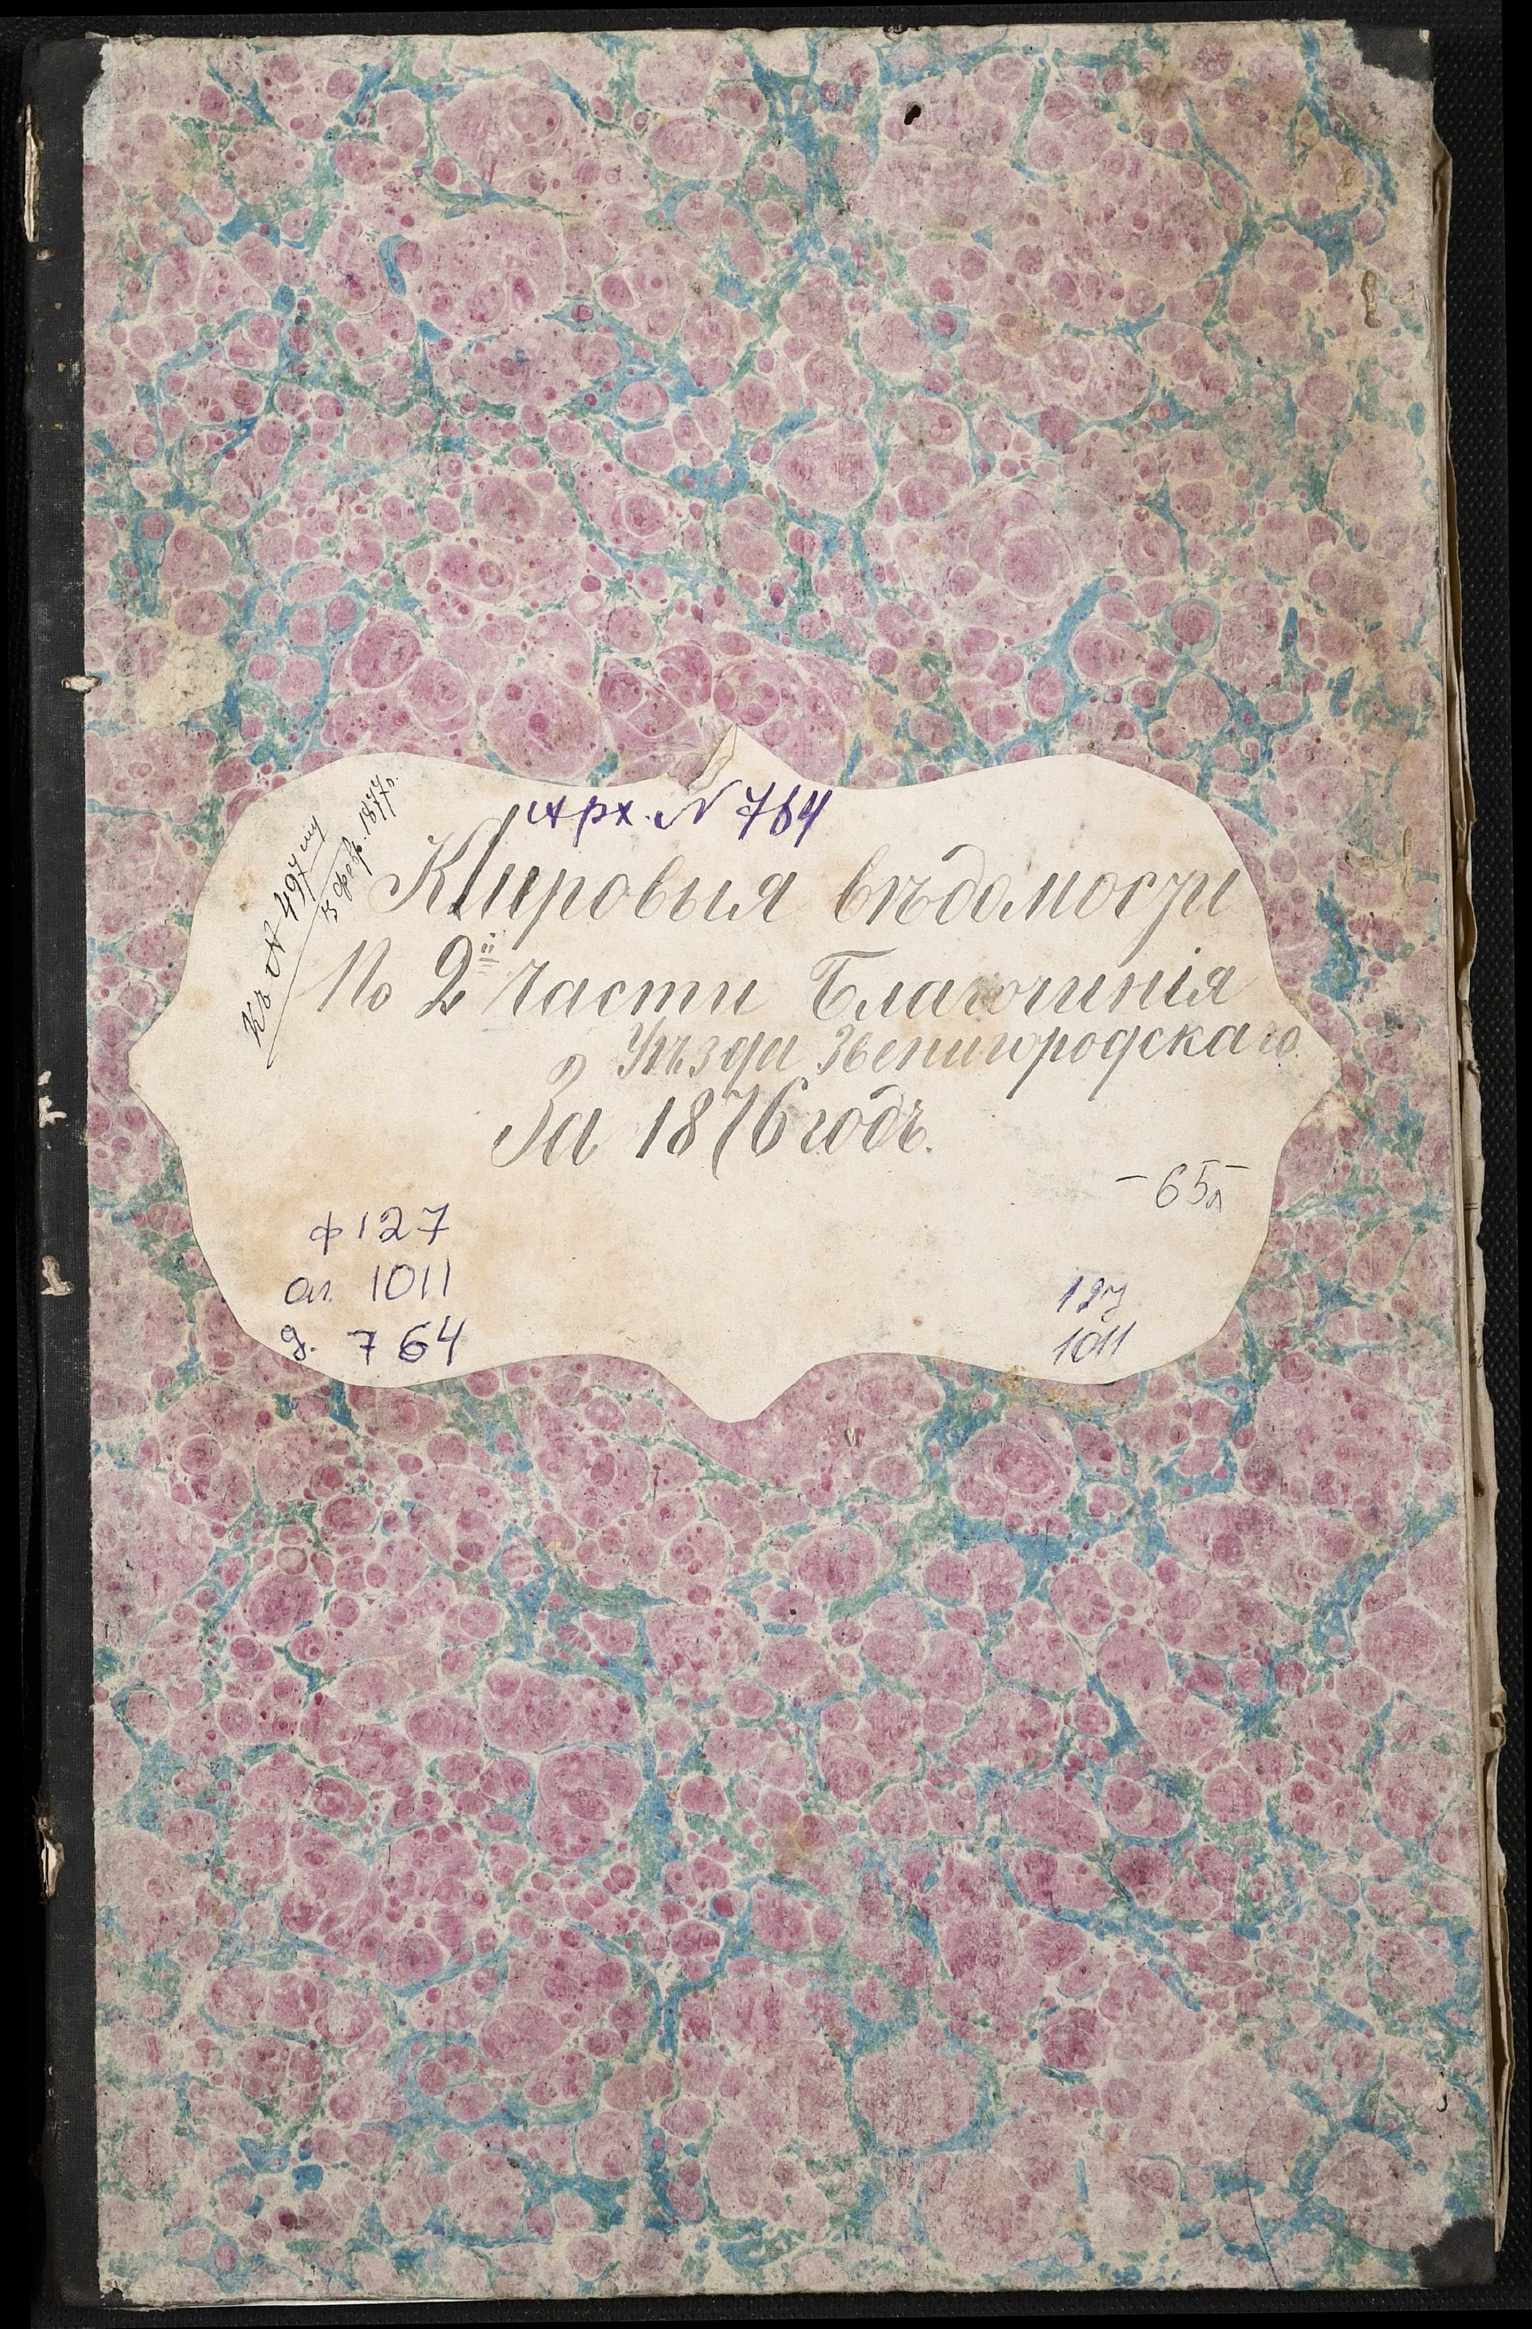 арх. № 764
Къ № 497му
5 февр. 1877 г.
Клировыя вѣдомости
По 2й части Благочинія
Уѣзда Звенигородскаго
За 1876 годъ.
– 65 л –
ф 127
оп. 1011
д. 764
127
1011